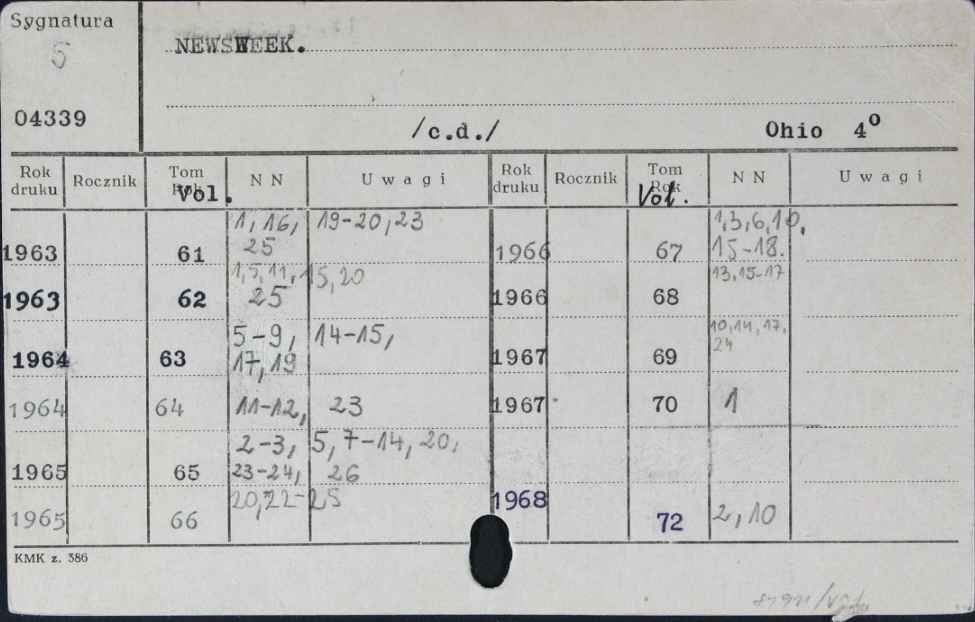 Sygnatura
5
NEWSWEEK.
04339
/c.d./ Ohio 4º
Rok druku Rocznik Tom Rok Vol. NN Uwagi Rok druku Rocznik Tom Rok Vol. NN Uwagi
1963 61 1, 16, 19-20, 23 25
1963 62 15, 20 25
1964 63 5-9, 14-15, 17, 19
1964 64 11-12, 23
1965 65 2-3, 5, 7-14, 20, 23-24, 26
1965 66 20, 22-25
1966 67 1, 3, 6, 10, 15-18.
1966 68 13, 15-17
1967 69 10, 14, 17, 24
1967 70 1
1968 72 2, 10
KMK z. 386